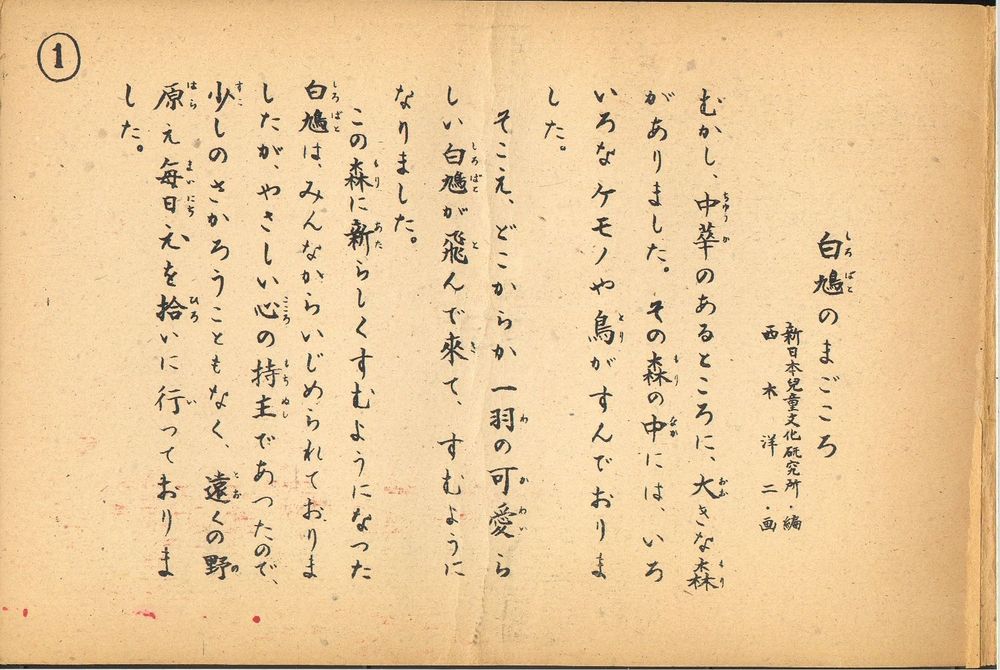 1
白鳩のまごころ
新日本兒童文化研究所・編
西木洋二・画
むかし、中華のあるところに、大きな森
がありました。その森の中には、いろ
いろなケモノや鳥がすんでおりま
した。
そこえ、どこからか一羽の可愛ら
しい白鳩が飛んで來て、すむように
なりました。
この森に新らしくすむようになった
白鳩は、みんなからいじめられておりま
したが、やさしい心の持主であつたので、
少しのさかろうこともなく、遠くの野
原え毎日え〲を拾いに行っておりま
した。